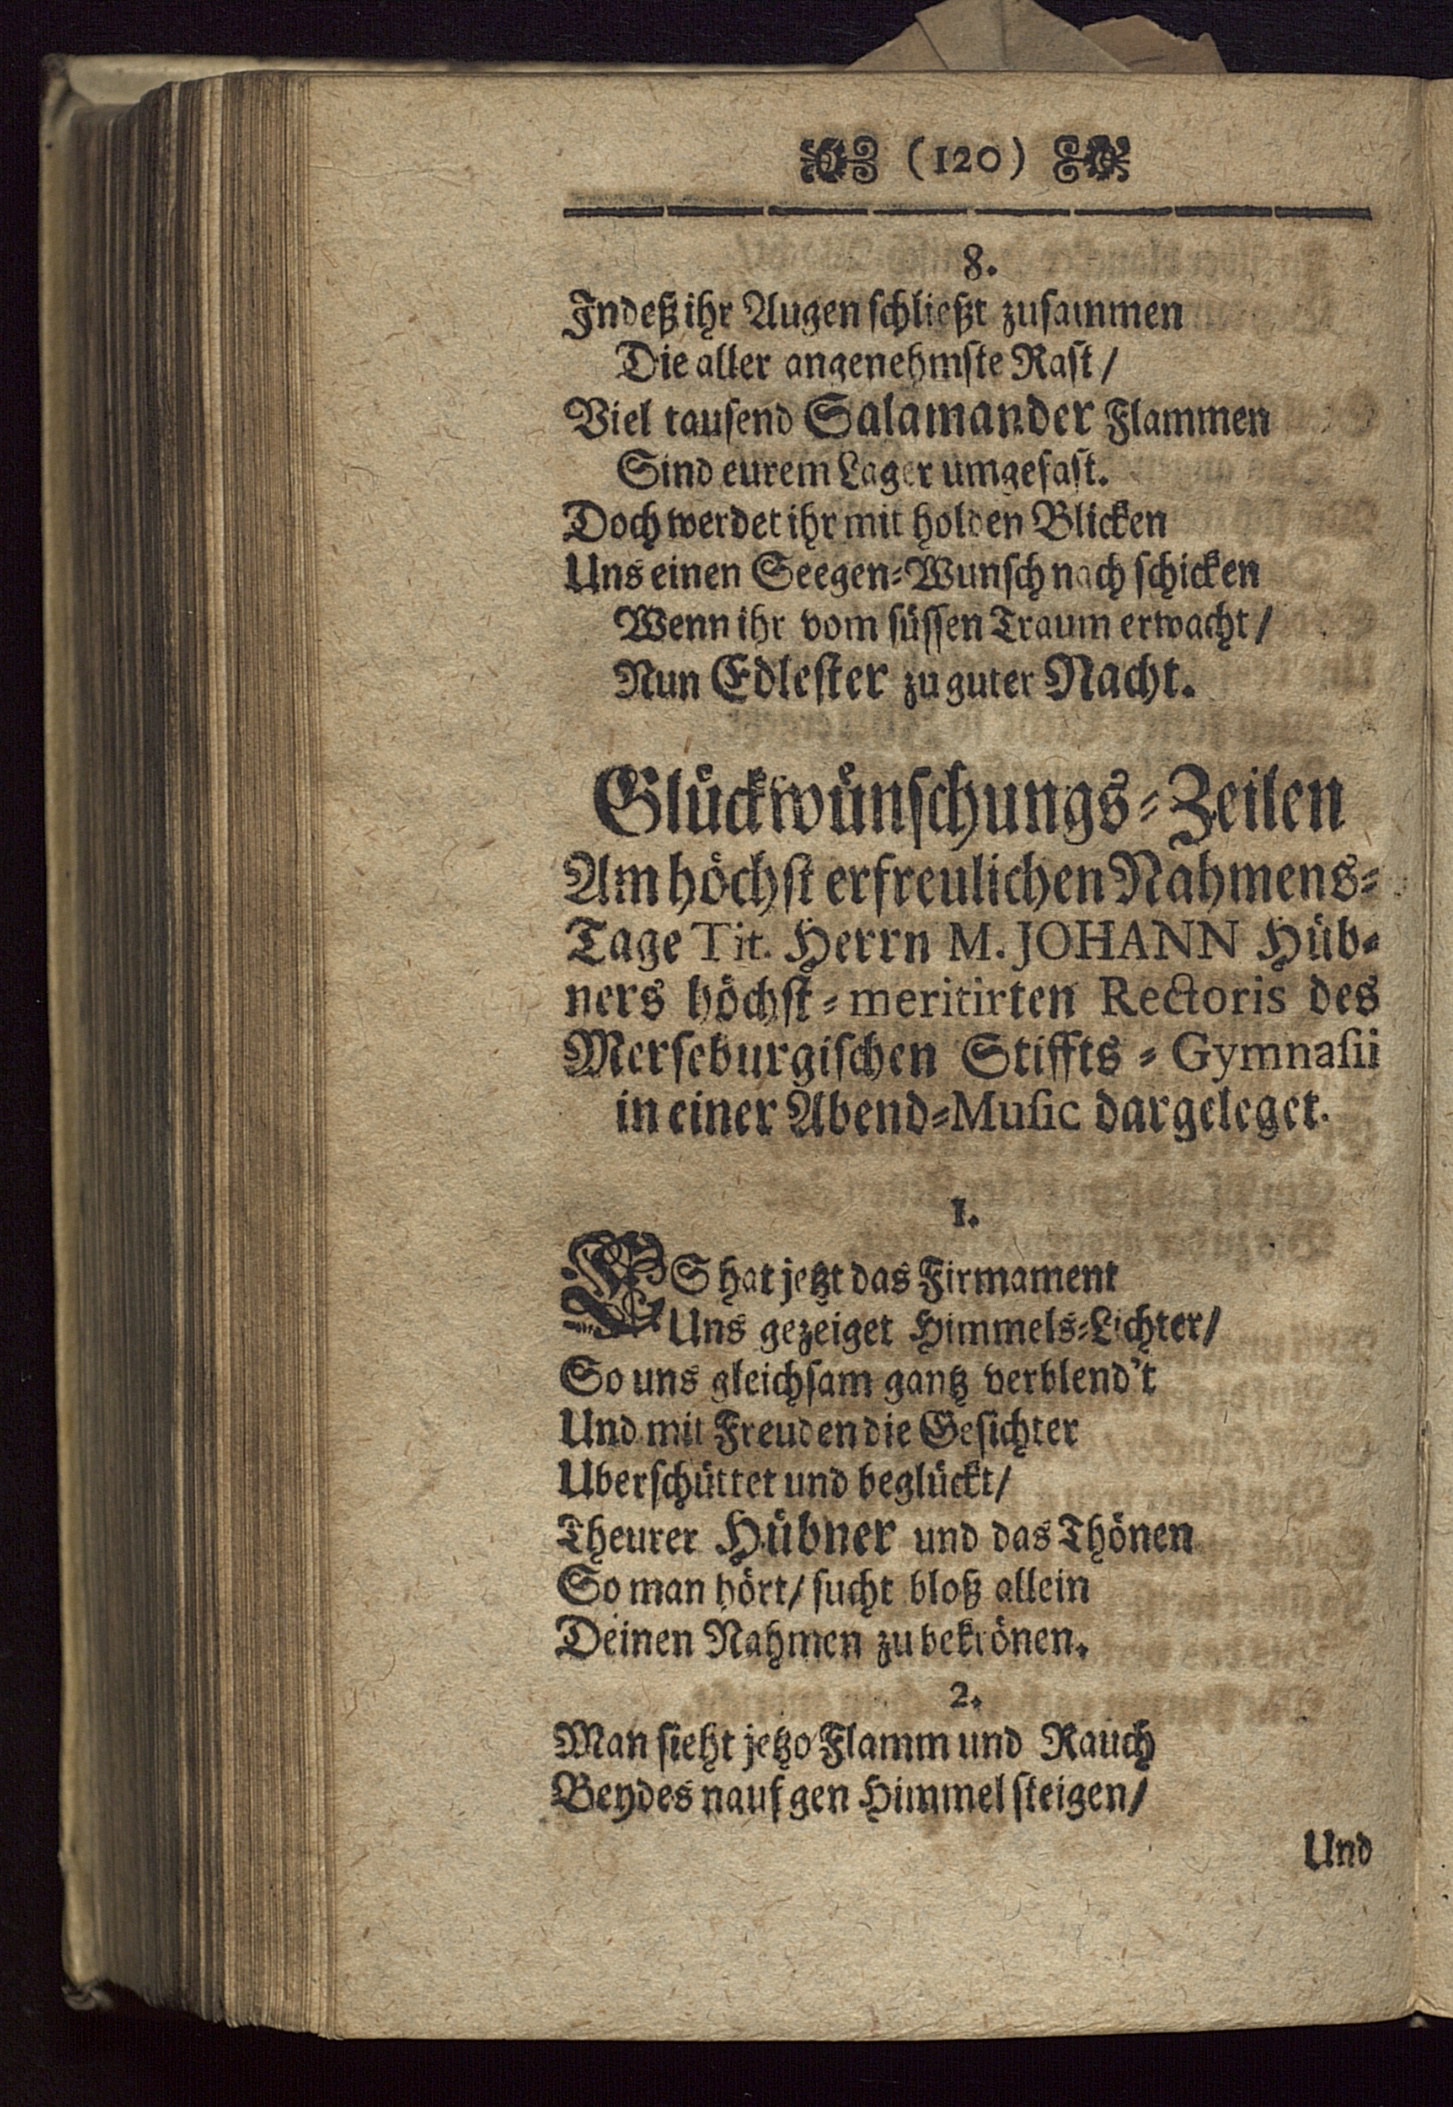 (120)
8.
Indeß ihr Augen schließt zusammen
Die aller angenehmste Rast/
Viel tausend Salamander Flammen
Sind eurem Lager umgefast.
Doch werdet ihr mit holden Blicken
Uns einen Seegen-Wunsch nach schicken
Wenn ihr vom süssen Traum erwacht/
Nun Edlester zu guter Nacht.
Glückwünschungs-Zeilen
Am höchst erfreulichen Nahmens-
Tage Tit. Herrn M. JOHANN Hüb-
ners höchst-meritirten Rectoris des
Merseburgischen Stiffts-Gymnasii
in einer Abend-Music dargeleget.
1.
ES hat jetzt das Firmament
Uns gezeiget Himmels-Lichter/
So uns gleichsam gantz verblend't
Und mit Freuden die Gesichter
Uberschüttet und beglückt/
Theurer Hübner und das Thönen
So man hört/ sucht bloß allein
Deinen Nahmen zu bekrönen.
2.
Man sieht jetzo Flamm und Rauch
Beydes nauf gen Himmel steigen/
Und